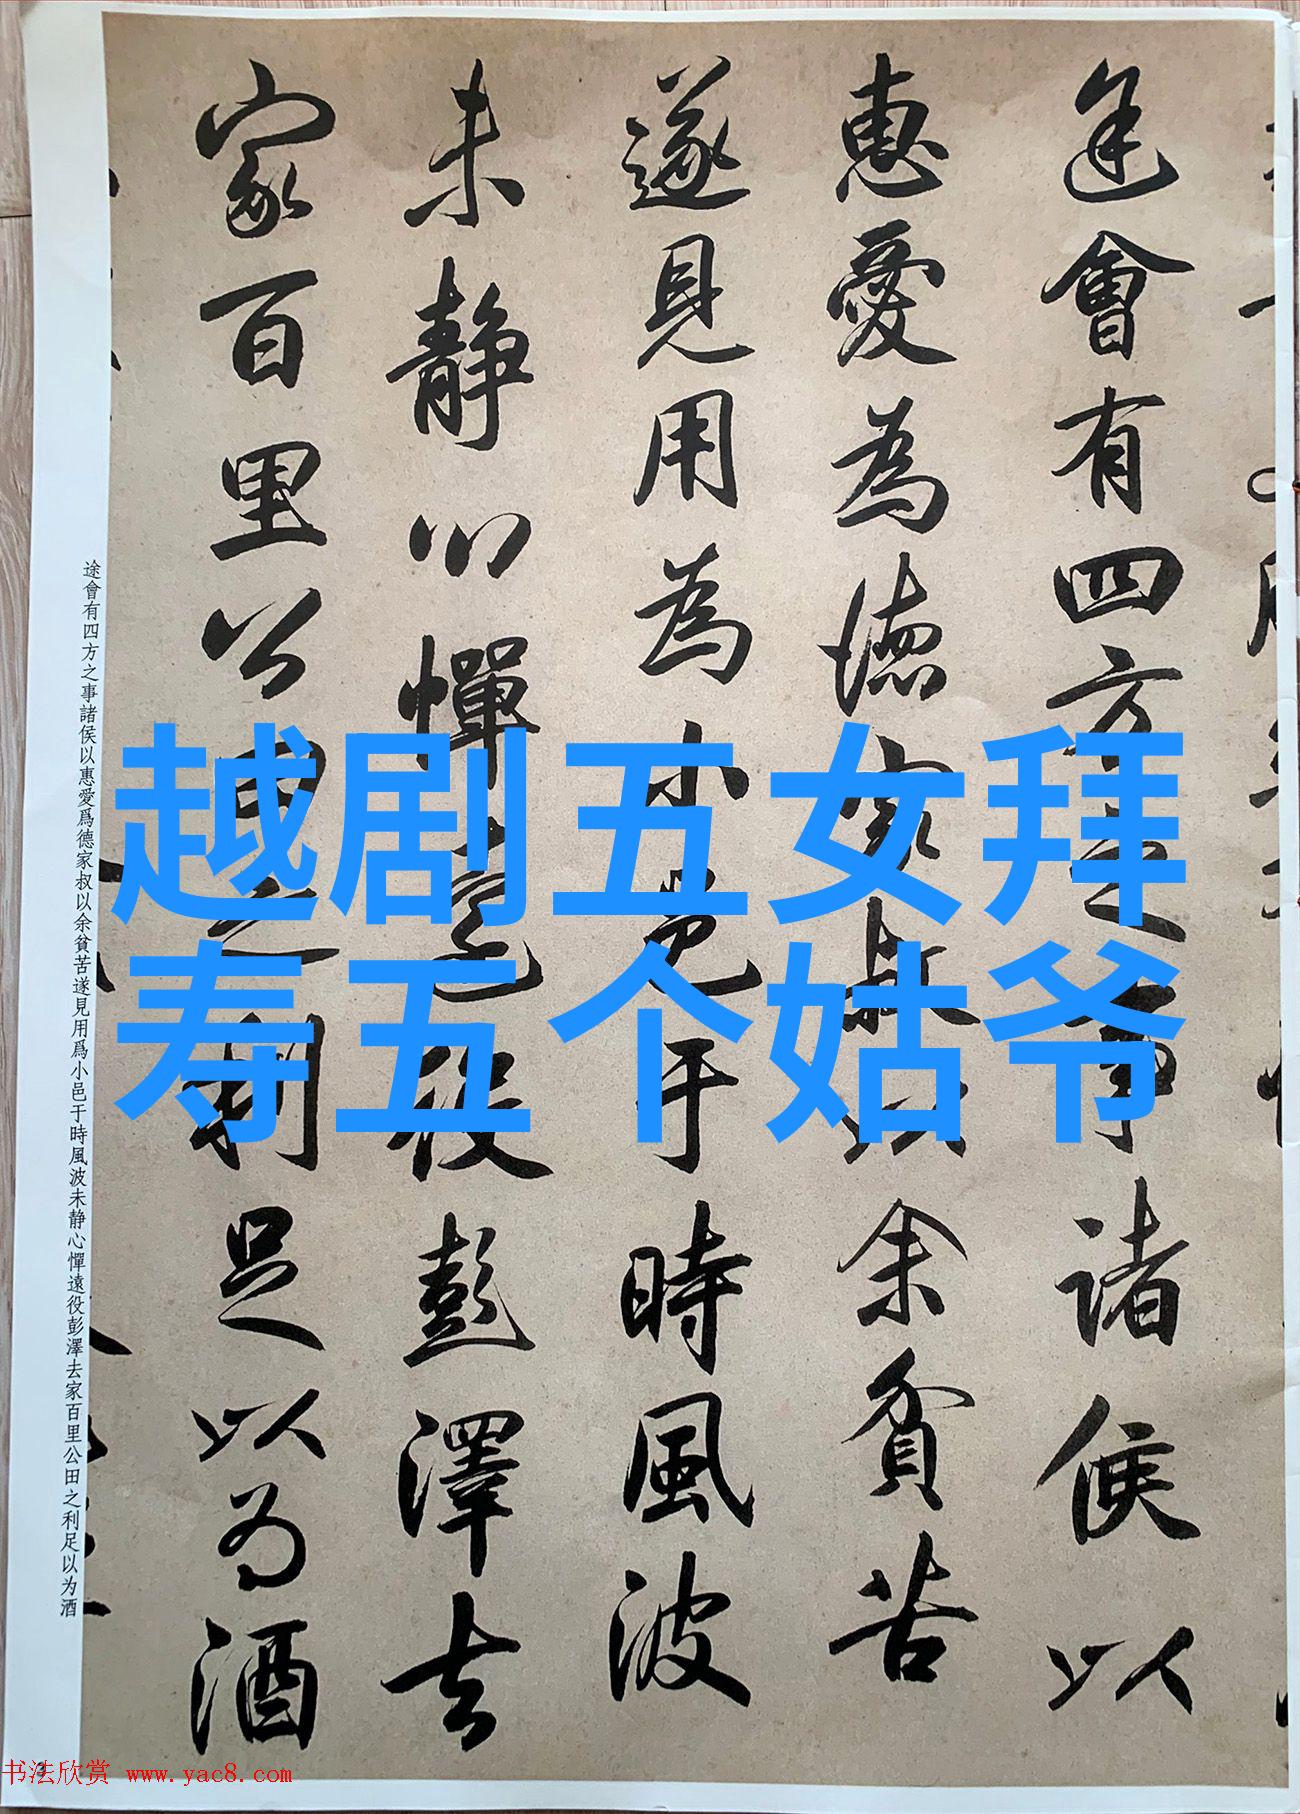 途會有四方之事諸侯以
惠愛為德家叔以余貧苦
遂見用為小邑于時風波
未静心憚遠役彭澤去
家百里公田之利足以為酒
越剧五女拜
寿五个姑爷
途會有四方之事諸侯以惠愛爲德家叔以余貧苦遂見用爲小邑于時風波未静心憚遠役彭澤去家百里公田之利足以为酒
3
书法欣赏 www.yac8.com